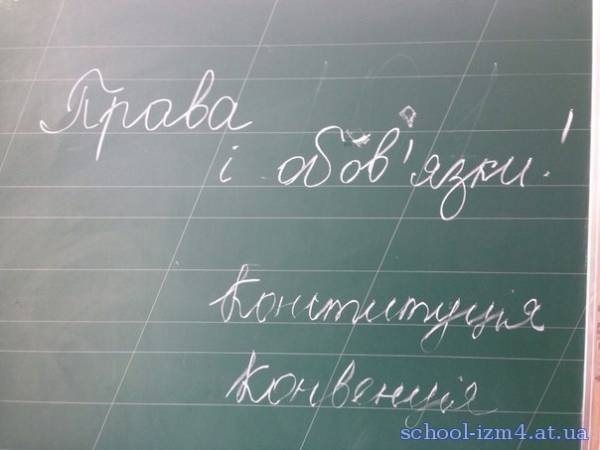 Права
і обов'язки!
Конституція
Конвенція
school-izm4.at.ua